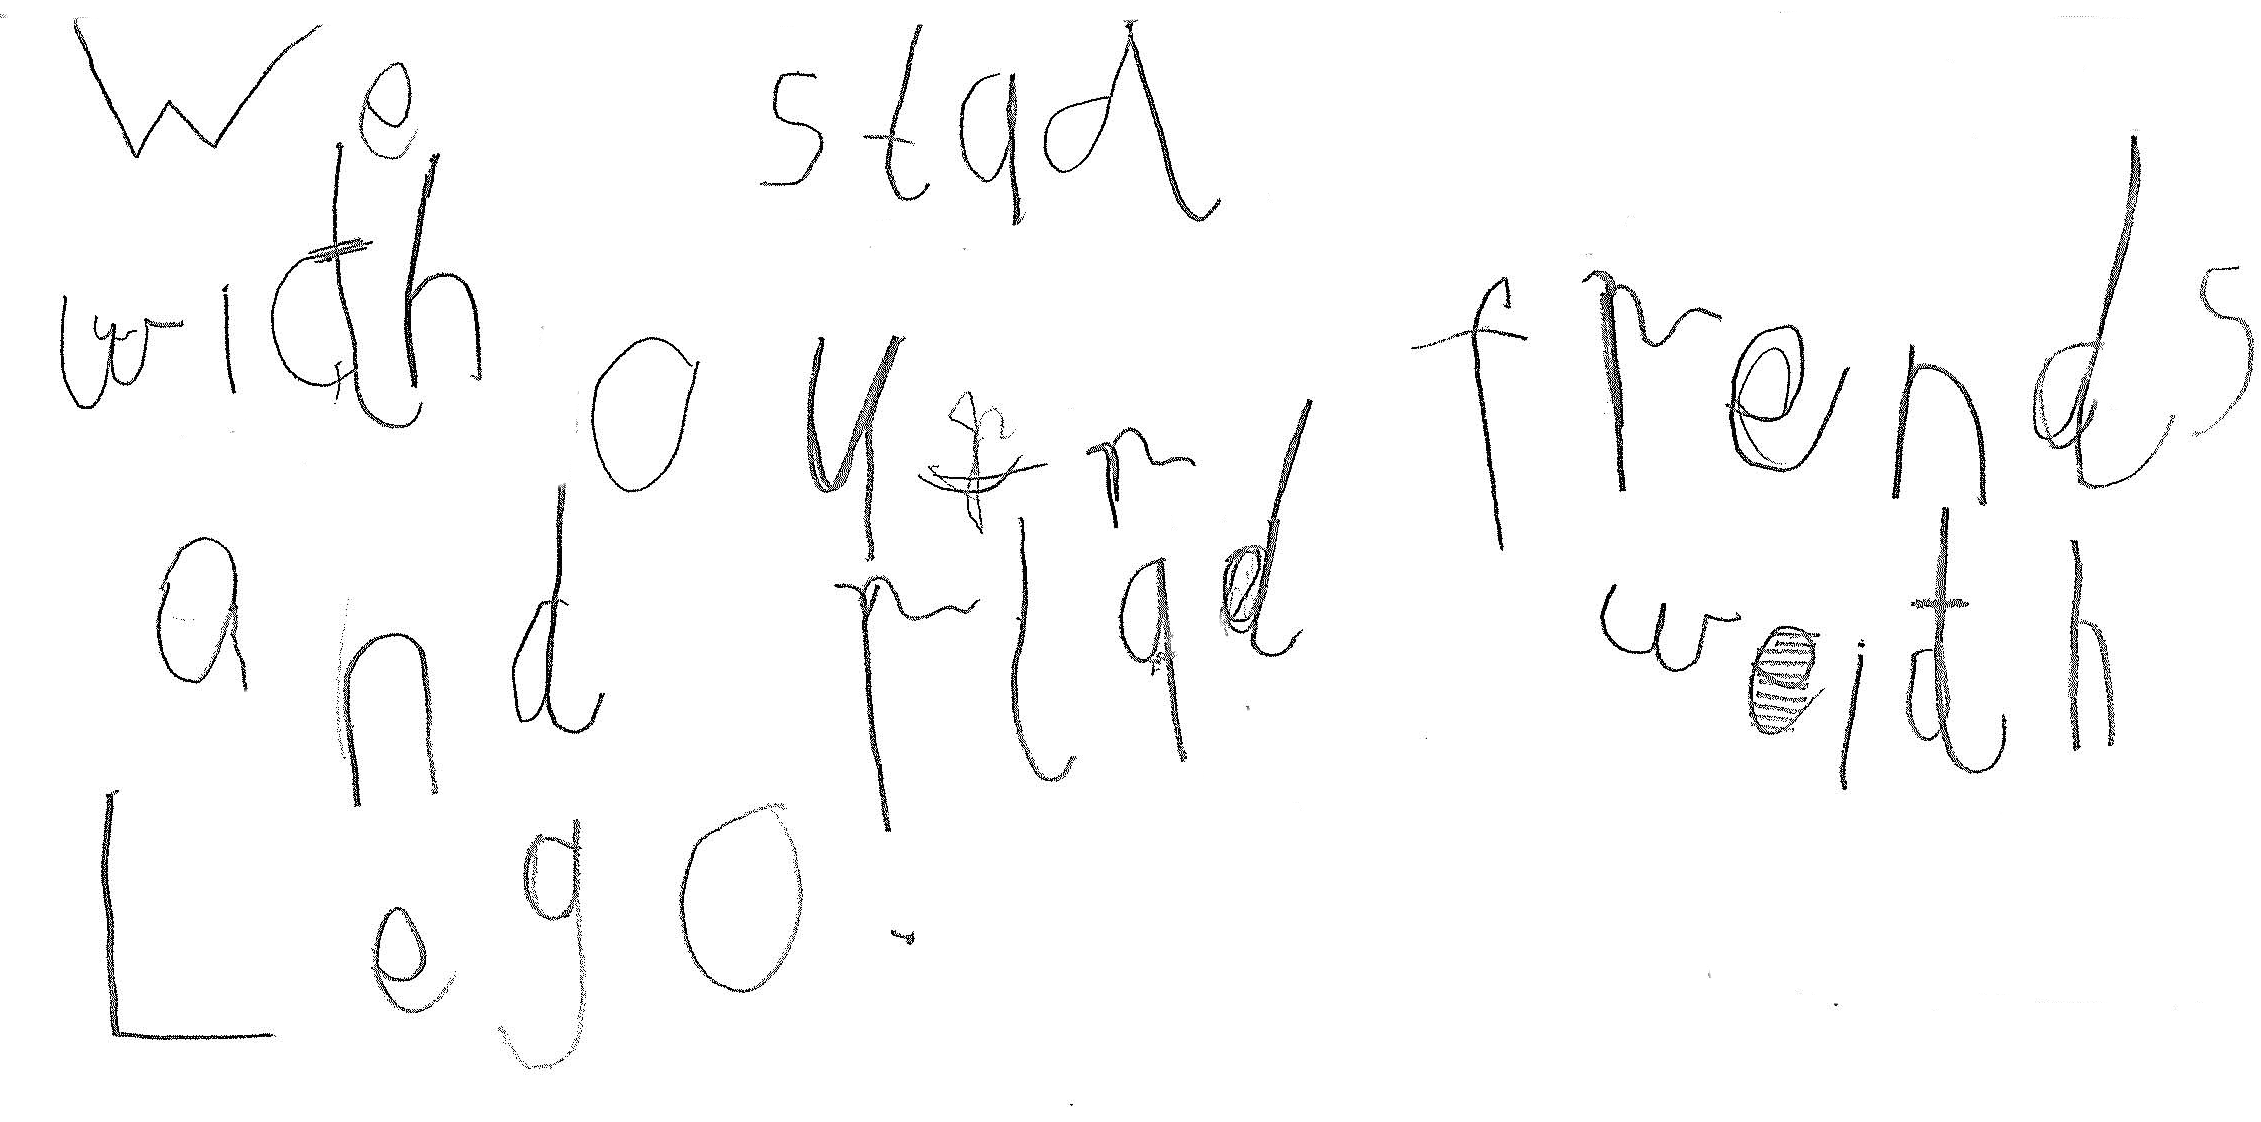 We stad
with our frends
and plad with
Lego.